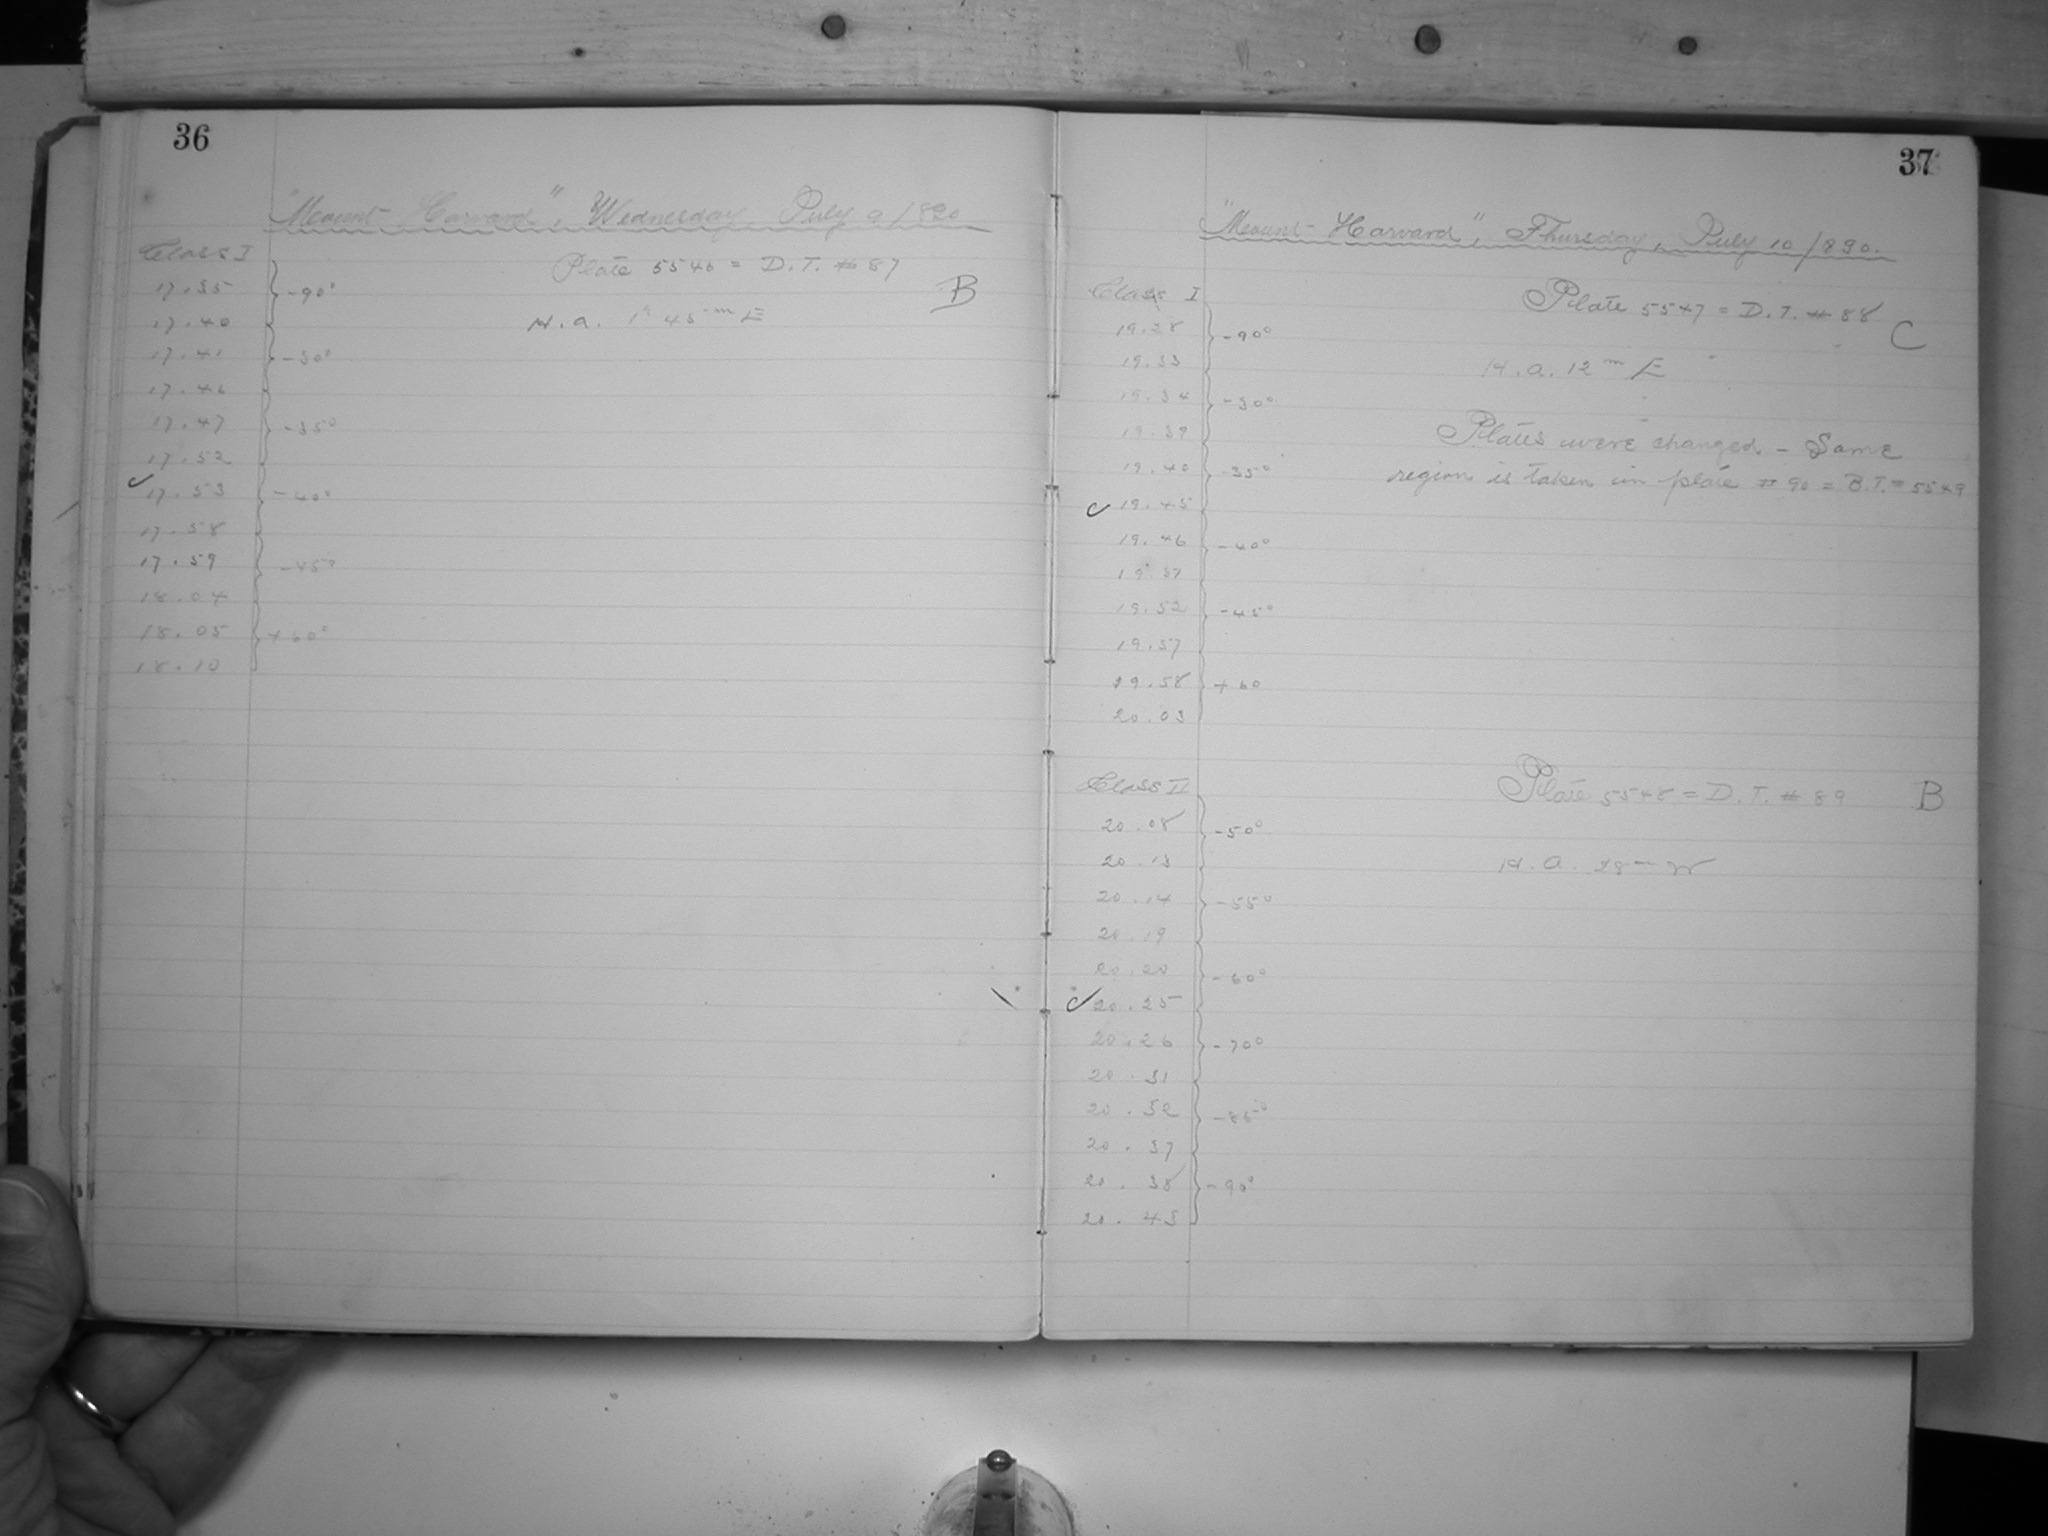 36
"Mount Harvard", Wednesday, July 9 1890
Class I
Plate 5546 = D.T. # 87
B
17.35
-90°
17.40
H.a. 1h 45m E
17.41
-30°
17.46
17.47
-35°
17.52
17.53
-40°
17.58
17.59
-45°
18.04
18.05
+60°
18.10
37
"Mount Harvard", Thursday, July 10 1890.
Class I
Plate 5547 = D.T. # 88
C
19.28
-90°
19.33
H.a. 12m E
19.34
-30°
19.39
Plates were changed - Same
19.40
-35°
region is taken in plate # 90 = B.T. = 5549
19.45
19.46
-40°
19.51
19.52
-45°
19.57
19.58
+60
20.03
Class II
Plate 5548 = D.T. # 89
B
20.08
-50°
20.13
H.a. 28m W
20.14
-55°
20.19
20.20
-60°
20.25
20.26
-70°
20.31
20.32
20.37
20.38
-90°
20.43